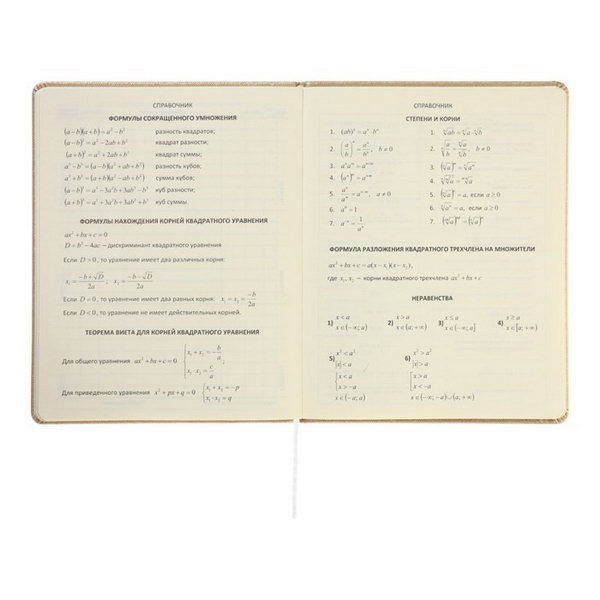 СПРАВОЧНИК
ФОРМУЛЫ СОКРАЩЕННОГО УМНОЖЕНИЯ
(a−b)(a+b)=a²−b² разность квадратов;
(a−b)²=a²−2ab+b² квадрат разности;
(a+b)²=a²+2ab+b² квадрат суммы;
a³−b³=(a−b)(a²+ab+b²) разность кубов;
a³+b³=(a+b)(a²−ab+b²) сумма кубов;
(a−b)³=a³−3a²b+3ab²−b³ куб разности;
(a+b)³=a³+3a²b+3ab²+b³ куб суммы.
ФОРМУЛЫ НАХОЖДЕНИЯ КОРНЕЙ КВАДРАТНОГО УРАВНЕНИЯ
ax²+bx+c=0
D=b²−4ac−дискриминант квадратного уравнения
Если D>0, то уравнение имеет два различных корня:
x₁=(−b+√D)/2a; x₂=(−b−√D)/2a
Если D=0, то уравнение имеет два равных корня: x₁=x₂=−b/2a
Если D<0, то уравнение не имеет действительных корней.
ТЕОРЕМА ВИЕТА ДЛЯ КОРНЕЙ КВАДРАТНОГО УРАВНЕНИЯ
Для общего уравнения ax²+bx+c=0 {x₁+x₂=−b/a
x₁·x₂=c/a;
Для приведенного уравнения x²+px+q=0 {x₁+x₂=−p
x₁·x₂=q
СПРАВОЧНИК
СТЕПЕНИ И КОРНИ
1. (ab)ⁿ=aⁿ·bⁿ
2. (a/b)ⁿ=aⁿ/bⁿ, b≠0
3. aⁿaᵐ=aⁿ⁺ᵐ
4. (aⁿ)ᵐ=aⁿᵐ
5. aⁿ/aᵐ=aⁿ⁻ᵐ, a≠0
6. a⁰=1
7. a⁻ⁿ=1/aⁿ
1. ⁿ√ab=ⁿ√a·ⁿ√b
2. ⁿ√(a/b)=ⁿ√a/ⁿ√b, b≠0
3. (ⁿ√a)ᵐ=ⁿ√aᵐ
4. ᵐ√ⁿ√a=ᵐⁿ√a
5. (ⁿ√a)ⁿ=a, если a≥0
6. ⁿ√aⁿ=a, если a≥0
ФОРМУЛА РАЗЛОЖЕНИЯ КВАДРАТНОГО ТРЕХЧЛЕНА НА МНОЖИТЕЛИ
ax²+bx+c=a(x−x₁)(x−x₂),
где x₁, x₂ − корни квадратного трехчлена ax²+bx+c
НЕРАВЕНСТВА
1) x<a
x∈(−∞;a)
2) x>a
x∈(a;+∞)
3) x≤a
x∈(−∞;a]
4) x≥a
x∈[a;+∞)
5) x²<a²
|x|<a
{x<a
x>−a
x∈(−a;a)
6) x²>a²
|x|>a
[x>a
x<−a
x∈(−∞;−a)∪(a;+∞)